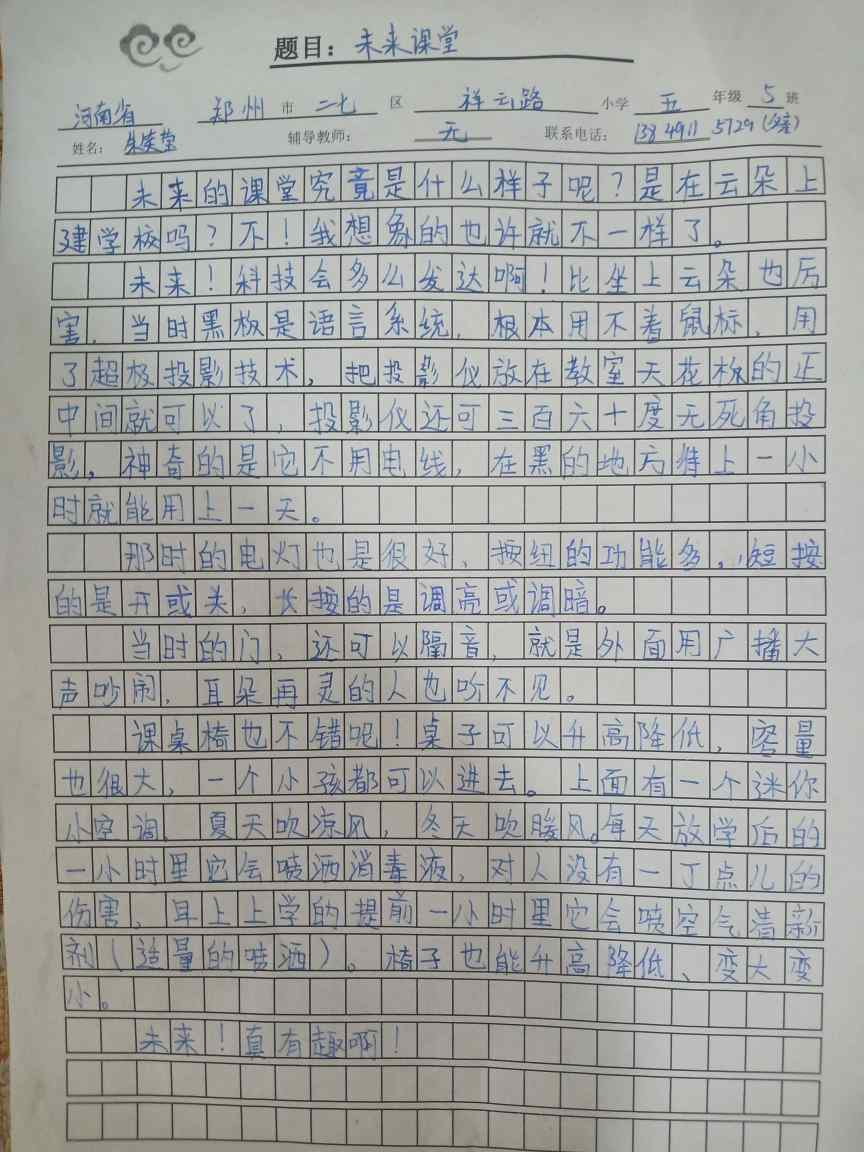 题目：未来课堂
河南省 郑州 市 二七 区 祥云路 小学 五 年级 5 班
姓名： 辅导教师： 无 联系电话：
未来的课堂究竟是什么样子呢？是在云朵上
建学校吗？不！我想象的也许就不一样了。
未来！科技会多么发达啊！比坐上云朵也厉
害，当时黑板是语言系统，根本用不着鼠标，用
了超极投影技术，把投影仪放在教室天花板的正
中间就可以了，投影仪还可三百六十度无死角投
影，神奇的是它不用电线，在黑的地方待上一小
时就能用上一天。
那时的电灯也是很好，按纽的功能多，短按
的是开或关，长按的是调亮或调暗。
当时的门，还可以隔音，就是外面用广播大
声吵闹，耳朵再灵的人也听不见。
课桌椅也不错呢！桌子可以升高降低，容量
也很大，一个小孩都可以进去。上面有一个迷你
小空调，夏天吹凉风，冬天吹暖风。每天放学后的
一小时里它会喷洒消毒液，对人没有一丁点儿的
伤害，早上上学的提前一小时里它会喷空气清新
剂（适量的喷洒）。椅子也能升高降低、变大变
小。
未来！真有趣啊！